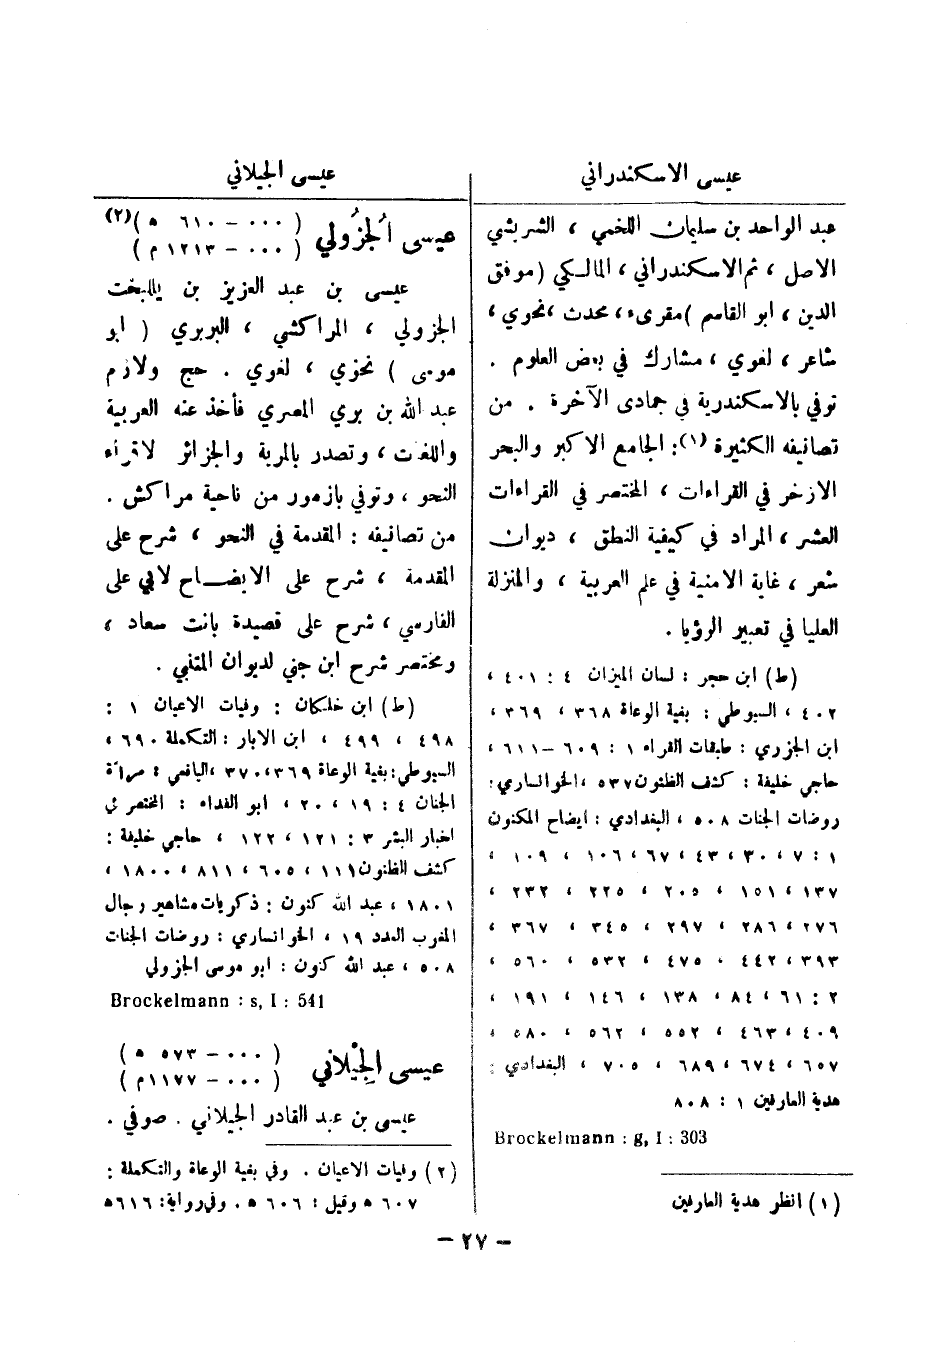 عيسى الاسكندراني
عبد الواحد بن سليمان اللخمي ، الشريشي
الاصل ، ثم الاسكندراني ، المالكي ( موفق
الدين ، ابو القاسم ) مقرىء ، محدث ، نحوي ،
شاعر ، لغوي ، مشارك في بعض العلوم .
توفي بالاسكندرية في جمادى الآخرة . من
تصانيفه الكثيرة (١): الجامع الاكبر والبحر
الازخر في القراءات ، المختصر في القراءات
العشر ، المراد في كيفية النطق ، ديوان
شعر ، غاية الامنية في علم العربية ، والمنزلة
العليا في تعبير الرؤيا .
(ط) ابن حجر : لسان الميزان ٤ : ٤٠١ ،
٤٠٢ ، السيوطي : بغية الوعاة ٣٦٨ ، ٣٦٩ ،
ابن الجزري : طبقات القراء ١ : ٦٠٩ - ٦١١ ،
حاجي خليفة : كشف الظنون ٥٣٧ ، الخوانساري :
روضات الجنات ٥٠٨ ، البغدادي : ايضاح المكنون
١ : ٧ ، ٣٠ ، ٤٣ ، ٦٧ ، ١٠٦ ، ١٠٩ ،
١٣٧ ، ١٥١ ، ٢٠٥ ، ٢٢٥ ، ٢٣٢ ،
٢٧٦ ، ٢٨٦ ، ٢٩٧ ، ٣٤٥ ، ٣٦٧ ،
٣٩٣ ، ٤٤٢ ، ٤٧٥ ، ٥٣٢ ، ٥٦٠ ،
٢ : ٦١ ، ٨٤ ، ١٣٨ ، ١٤٦ ، ١٩١ ،
٤٠٩ ، ٤٦٣ ، ٥٥٢ ، ٥٦٢ ، ٥٨٠ ،
٦٥٧ ، ٦٧٤ ، ٦٨٩ ، ٧٠٥ ، البغدادي :
هدية العارفين ١ : ٨٠٨
Brockelmann : g, I : 303
(١) انظر هدية العارفين
عيسى الجيلاني
عيسى الجُزُولي ( ٠٠٠ - ٦١٠ ه ) (٢)
( ٠٠٠ - ١٢١٣ م )
عيسى بن عبد العزيز بن يللبخت
الجزولي ، المراكشي ، البربري ( ابو
موسى ) نحوي ، لغوي . حج ولازم
عبد الله بن بري المصري فأخذ عنه العربية
واللغت ، وتصدر بالمرية والجزائر لاقراء
النحو ، وتوفي بازمور من ناحية مراكش .
من تصانيفه : المقدمة في النحو ، شرح على
المقدمة ، شرح على الايضاح لابي علي
الفارسي ، شرح على قصيدة بانت سعاد ،
ومختصر شرح ابن جني لديوان المتنبي .
(ط) ابن خلكان : وفيات الاعيان ١ :
٤٩٨ ، ٤٩٩ ، ابن الابار : التكملة ٦٩٠ ،
السيوطي : بغية الوعاة ٣٦٩ ، ٣٧٠ ، اليافعي : مرآة
الجنان ٤ : ١٩ ، ٢٠ ، ابو الفداء : المختصر في
اخبار البشر ٣ : ١٢١ ، ١٢٢ ، حاجي خليفة :
كشف الظنون ١١١ ، ٦٠٥ ، ٨١١ ، ١٨٠٠ ،
١٨٠١ ، عبد الله كنون : ذكريات مشاهير رجال
المغرب العدد ١٩ ، الخوانساري : روضات الجنات
٥٠٨ ، عبد الله كنون : ابو موسى الجزولي
Brockelmann : s, I : 541
عيسى الجِيْلاني ( ٠٠٠ - ٥٧٣ ه )
( ٠٠٠ - ١١٧٧ م )
عيسى بن عبد القادر الجيلاني . صوفي .
(٢) وفيات الاعيان . وفي بغية الوعاة والتكملة :
٦٠٧ ه وقيل : ٦٠٦ ه . وفي رواية : ٦١٦ ه
- ٢٧ -